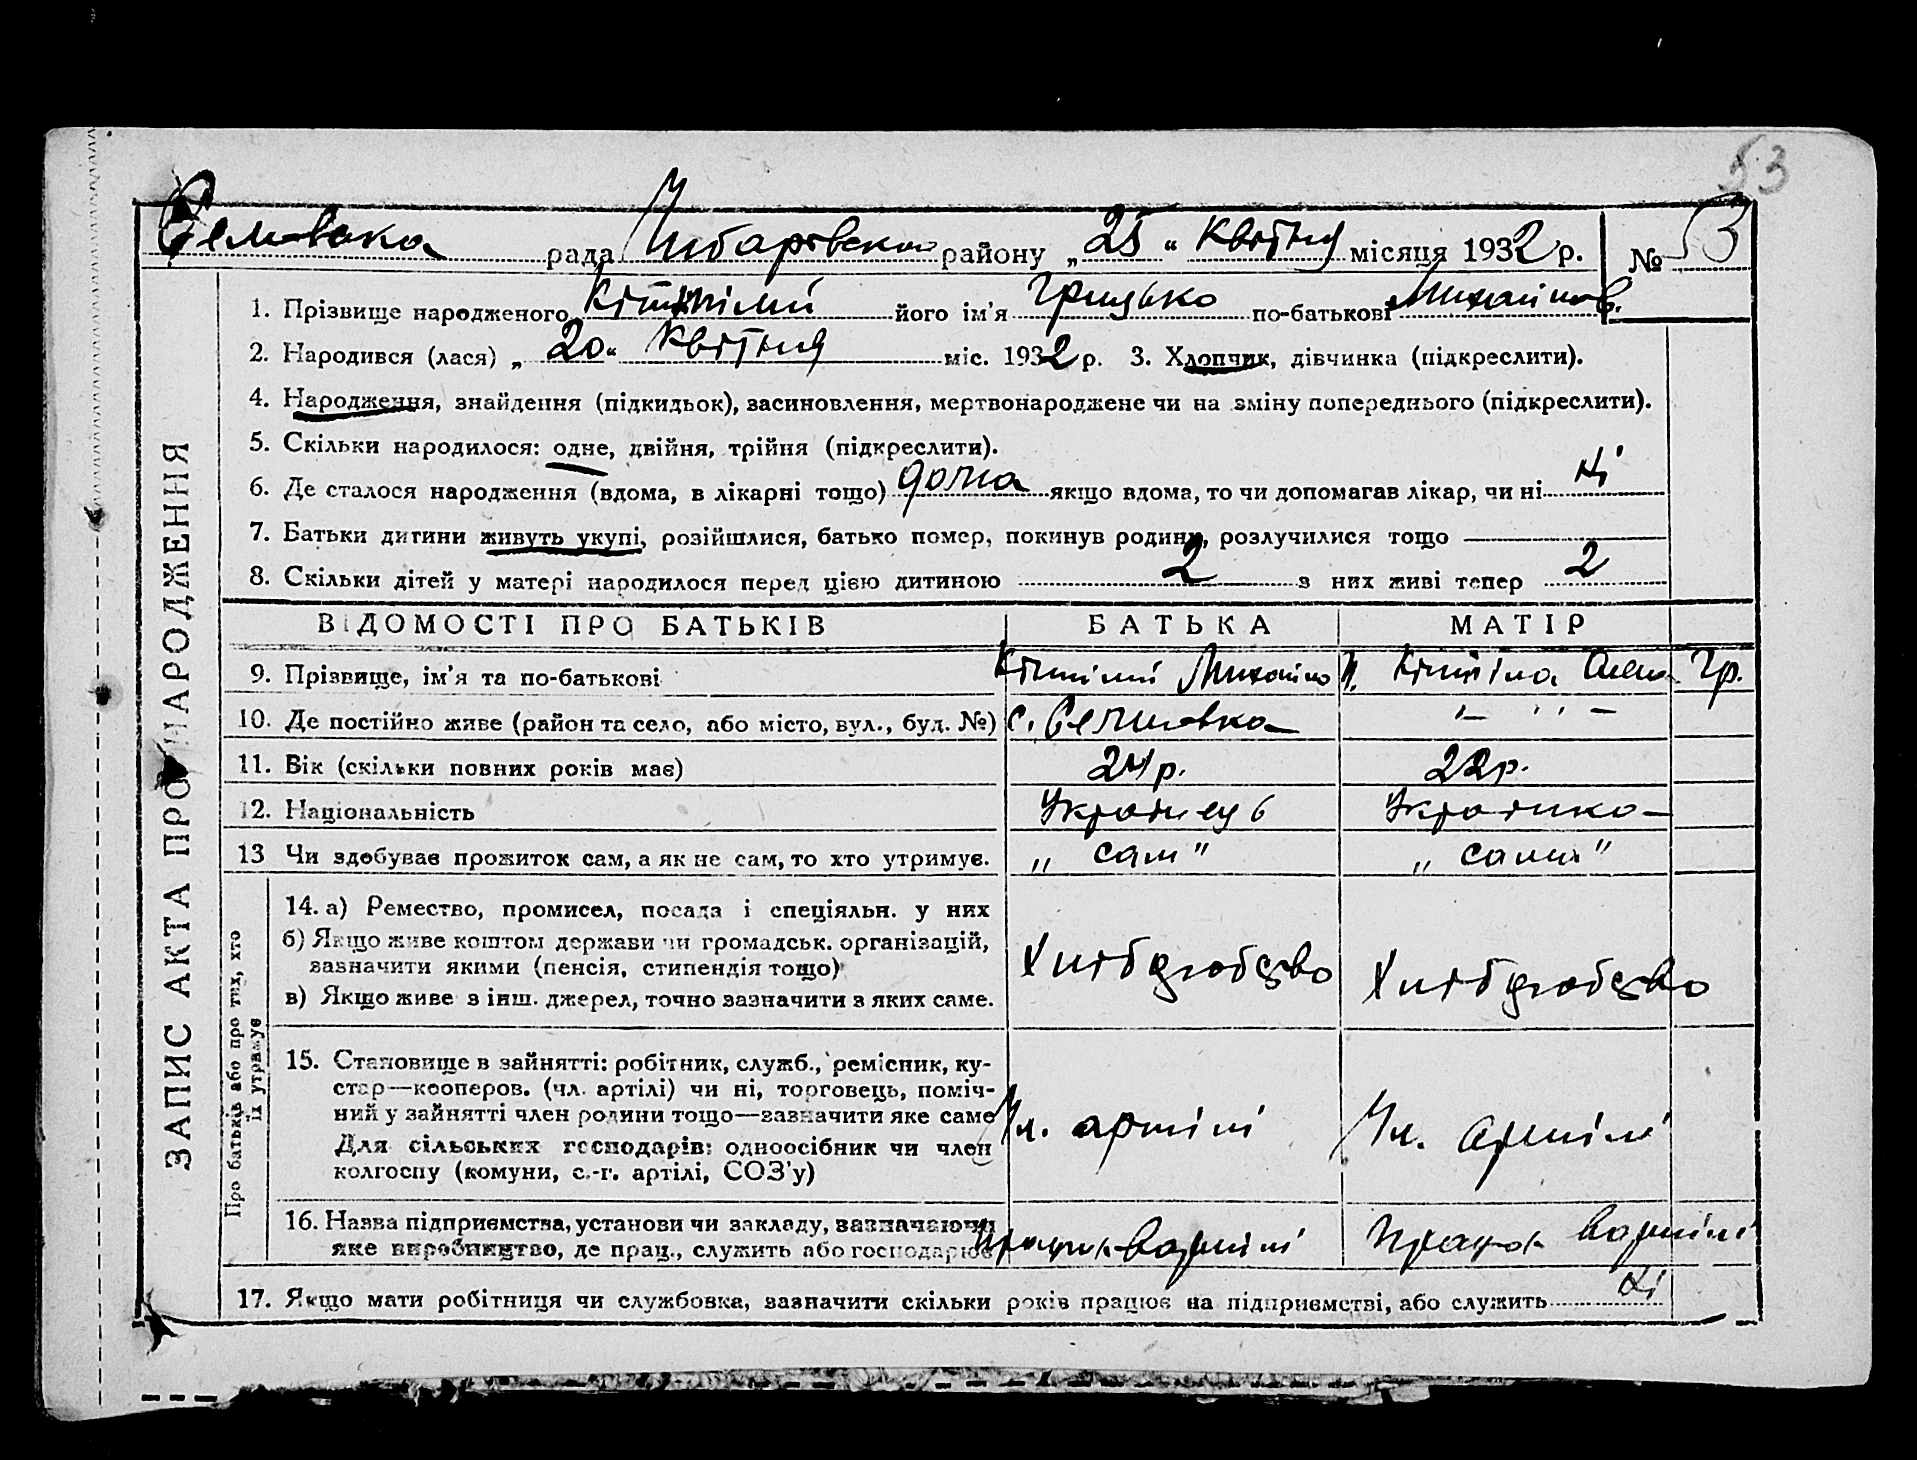 53
рада району „25“ Квітня місяця 1932 р. № 53
1. Прізвище народженого його ім'я Грицько по-батькові Михайлов.
2. Народився (лася) „20“ Квітня міс. 1932 р. 3. Хлопчик, дівчинка (підкреслити).
4. Народження, знайдення (підкидьок), засиновлення, мертвонароджене чи на зміну попереднього (підкреслити).
5. Скільки народилося: одне, двійня, трійня (підкреслити).
6. Де сталося народження (вдома, в лікарні тощо) дома якщо вдома, то чи допомагав лікар, чи ні ні
7. Батьки дитини живуть укупі, розійшлися, батько помер, покинув родину, розлучилися тощо
8. Скільки дітей у матері народилося перед цією дитиною 2 з них живі тепер 2
ЗАПИС АКТА ПРО НАРОДЖЕННЯ
ВІДОМОСТІ ПРО БАТЬКІВ БАТЬКА МАТІР
9. Прізвище, ім'я та по-батькові Михайло Гр.
10. Де постійно живе (район та село, або місто, вул., буд. №) с.
11. Вік (скільки повних років має) 24 р. 22 р.
12. Національність Украінець Украінка
13 Чи здобував прожиток сам, а як не сам, то хто утримує. „ сам " „ сама "
Про батька або про тих, хто їх утримує
14. а) Ремество, промисел, посада і спеціяльн. у них
б) Якщо живе коштом держави чи громадськ. організацій,
зазначити якими (пенсія, стипендія тощо)
в) Якщо живе з інш. джерел, точно зазначити з яких саме.
Хлібробство Хлібробство
15. Становище в зайнятті: робітник, служб., ремісник, ку-
стар—кооперов. (чл. артілі) чи ні, торговець, поміч-
ний у зайнятті член родини тощо—зазначити яке саме
Для сільських господарів: одноосібник чи член
колгоспу (комуни, с.-г. артілі, СОЗ'у)
Чл. артілі Чл. артілі
16. Назва підприємства, установи чи закладу, зазначаючи
яке виробництво, де прац., служить або господарює
вартілі вартілі
17. Якщо мати робітниця чи службовка, зазначити скільки років працює на підприємстві, або служить ні